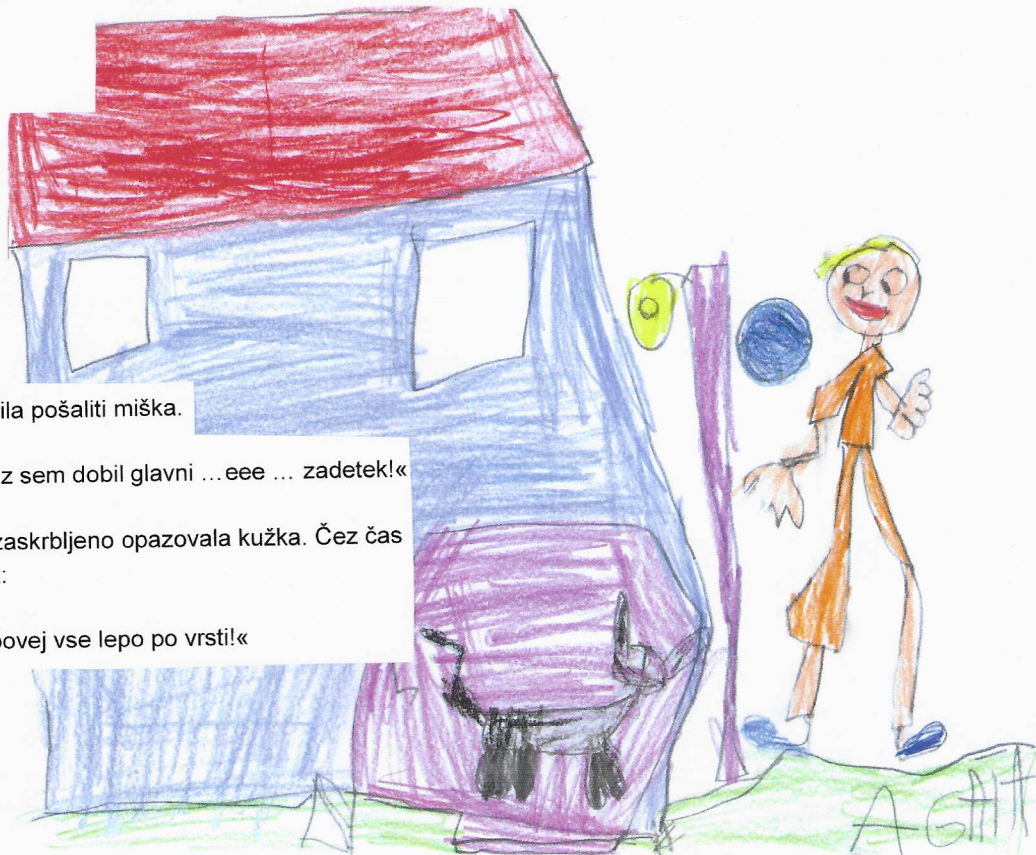 ila pošaliti miška.
z sem dobil glavni …eee … zadetek!«
zaskrbljeno opazovala kužka. Čez čas
:
povej vse lepo po vrsti!«
AGATA